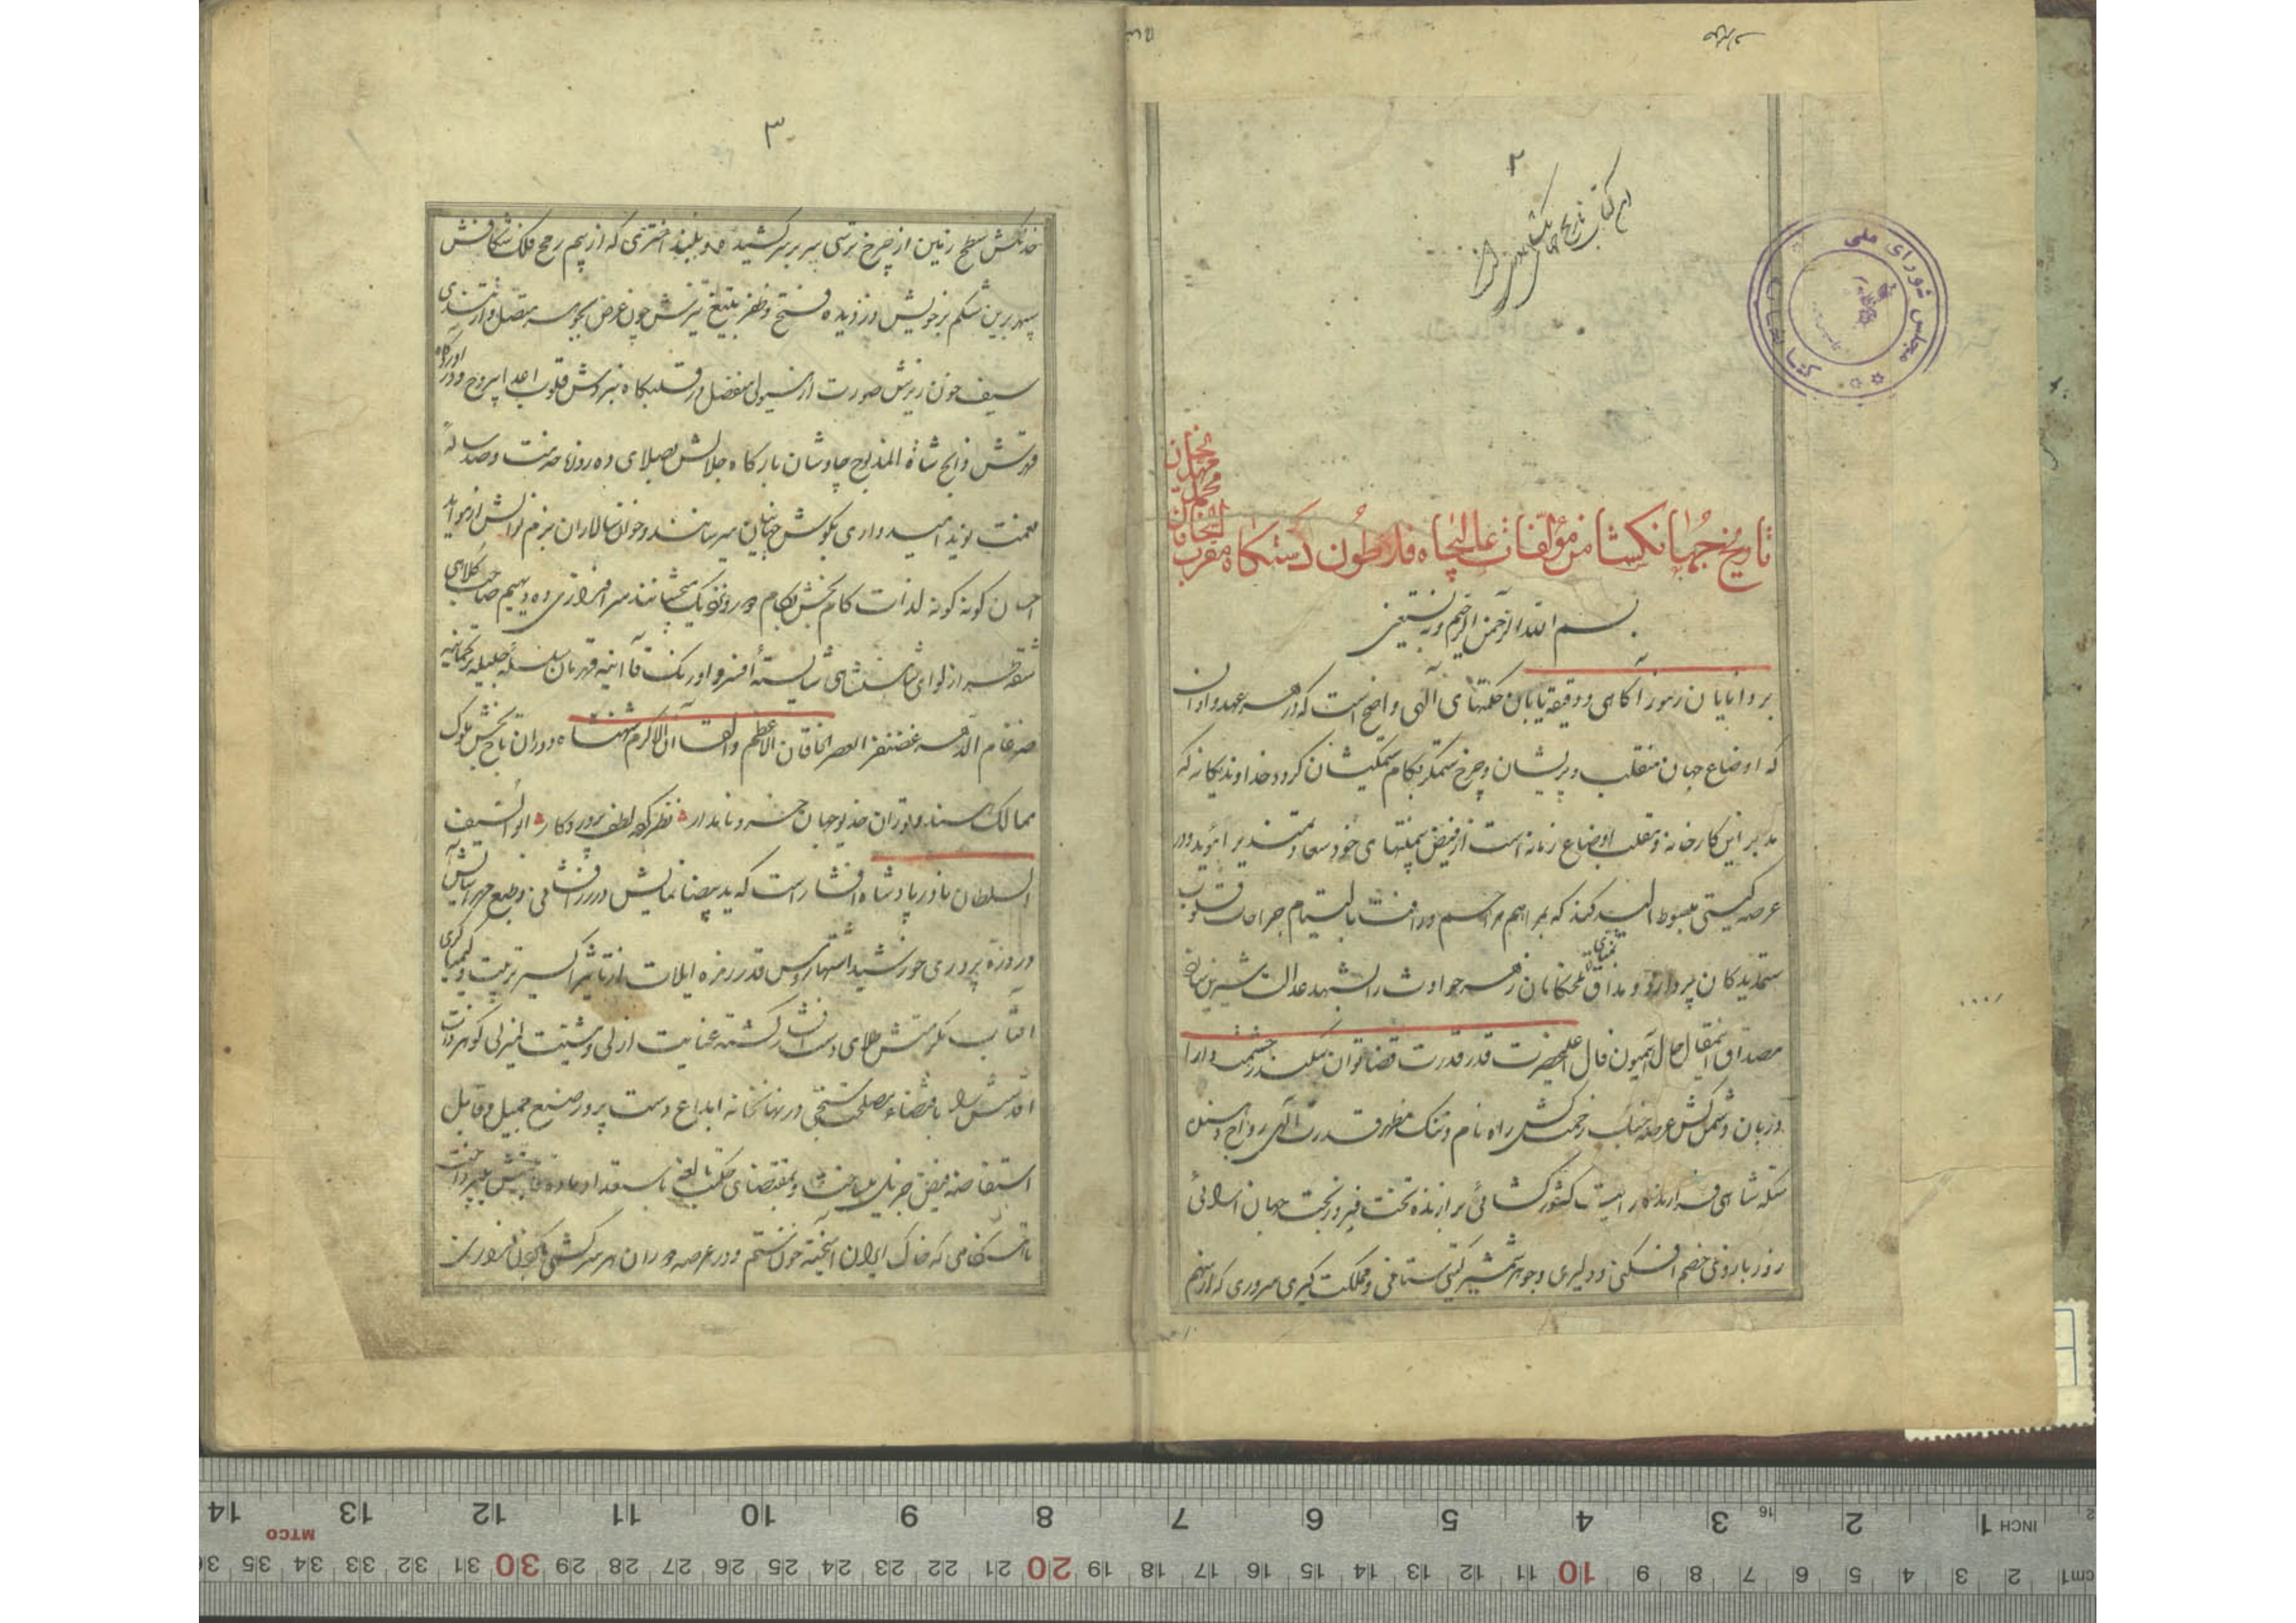 ۲
این کتاب تاریخ جهانگشای
مجلس شورای ملی
کتابخانه
تاریخ جهانکشا من مؤلفات عالیجاه فلاطون دستکاه مقرب
الخاقان
محمد
مهدیخان
بسم الله الرحمن الرحیم وبه نستعین
بر دانایان رموز آکاهی و دقیقه یابان حکمتهای الهی واضح است که در هر عهد و اوان
که اوضاع جهان منقلب و پریشان و چرخ ستمکر بکام ستمکیشان کردد خداوند یکانه که
مدبر این کارخانه و مقلب اوضاع زمانه است از فیض بیمنتهای خود سعادتمندیرا مؤید و در
عرصه کیتی مبسوط الید کند که بمراهم مراحم و رافت بالتیام جراحات قلوب
ستمدیدکان پردازد و مذاق تمنای تلخکامان زهر حوادث را بشهد عدالت شیرین سازد
مصداق اینمقال حال همیون فال اعلیحضرت قدر قدرت قضا توان سکندر حشمت دارا
دربان دشمن کش عرصه جنک زحمت کش راه نام و ننک مظهر قدرت الهی رواج دهنده
سکه شاهی فرازنده رایت کشور کشائی برازنده تخت فیروزبخت جهان آرائی
زور بازوی خصم افکنی و دلیری و جوهر شمشیر کیتی ستانی و مملکت کیری سروری که از سهم
۳
خدنکش سطح زمین از چرخ ترسی سپر بر سر کشیده و بلند اختری که از بیم رمح فلک شکافش
سپهر برین شکم بر خویش دزدیده فتح و ظفر بتیغ تیزش چون عرض بجوهر متصل و از تندی
سیف خون ریزش صورت از هیولی منفصل در قلبکاه نبردش قلوب اعدا بیروح و در آوردکاه
قهرش ذابح شاة المذبوح چاوشان بارکاه جلالش بصلای
نعمت نوید امیدواری بکوش جهانیان میرسانند و خوان سالاران بزم نوالش از موائد
احسان کونه کونه لذات کام بخش بکام دور و نزدیک میچشانند سرافرازی ده دیهیم صاحب کلاهی
شقه طراز لوای شاهنشاهی شایسته افسر و اورنک قاآنیه قهرمان سلسله جلیله ترکمانیه
ضرغام الدهر غضنفر العصر الخاقان الاعظم والقاآن الاکرم شهنشاه دوران تاج بخش ملوک
ممالک هند و توران خدیو جهان خسرو نامدار نظر کرده لطف پروردکار ابو السیف
السلطان نادر پادشاه افشار است که ید بیضا نمایش در زرافشانی و طبع مهر آسایش
در ذره پروری خورشید اشتهار و مس قدر زمره ایلات از تاثیر اکسیر تربیت و کیمیای کری
آفتاب مکرمتش طلای دست افشار کشته عنایت ازلی و مشیت لم یزلی کوهر ذات
اقدسش را باقتضاء مصلحت سنجی در نهانخانه ابداع دست پرورد صنع جمیل و قابل
استفاضه فیض جزیل ساخت و بمقتضای حکمت بالغه
تا هنکامی که خاک ایران آمیخته خون ستم و در عرصه دوران هر سرکشی
14 13 12 11 10 9 8 7 6 5 4 3 2 1 INCH
MTCO
36 35 34 33 32 31 30 29 28 27 26 25 24 23 22 21 20 19 18 17 16 15 14 13 12 11 10 9 8 7 6 5 4 3 2 1 cm